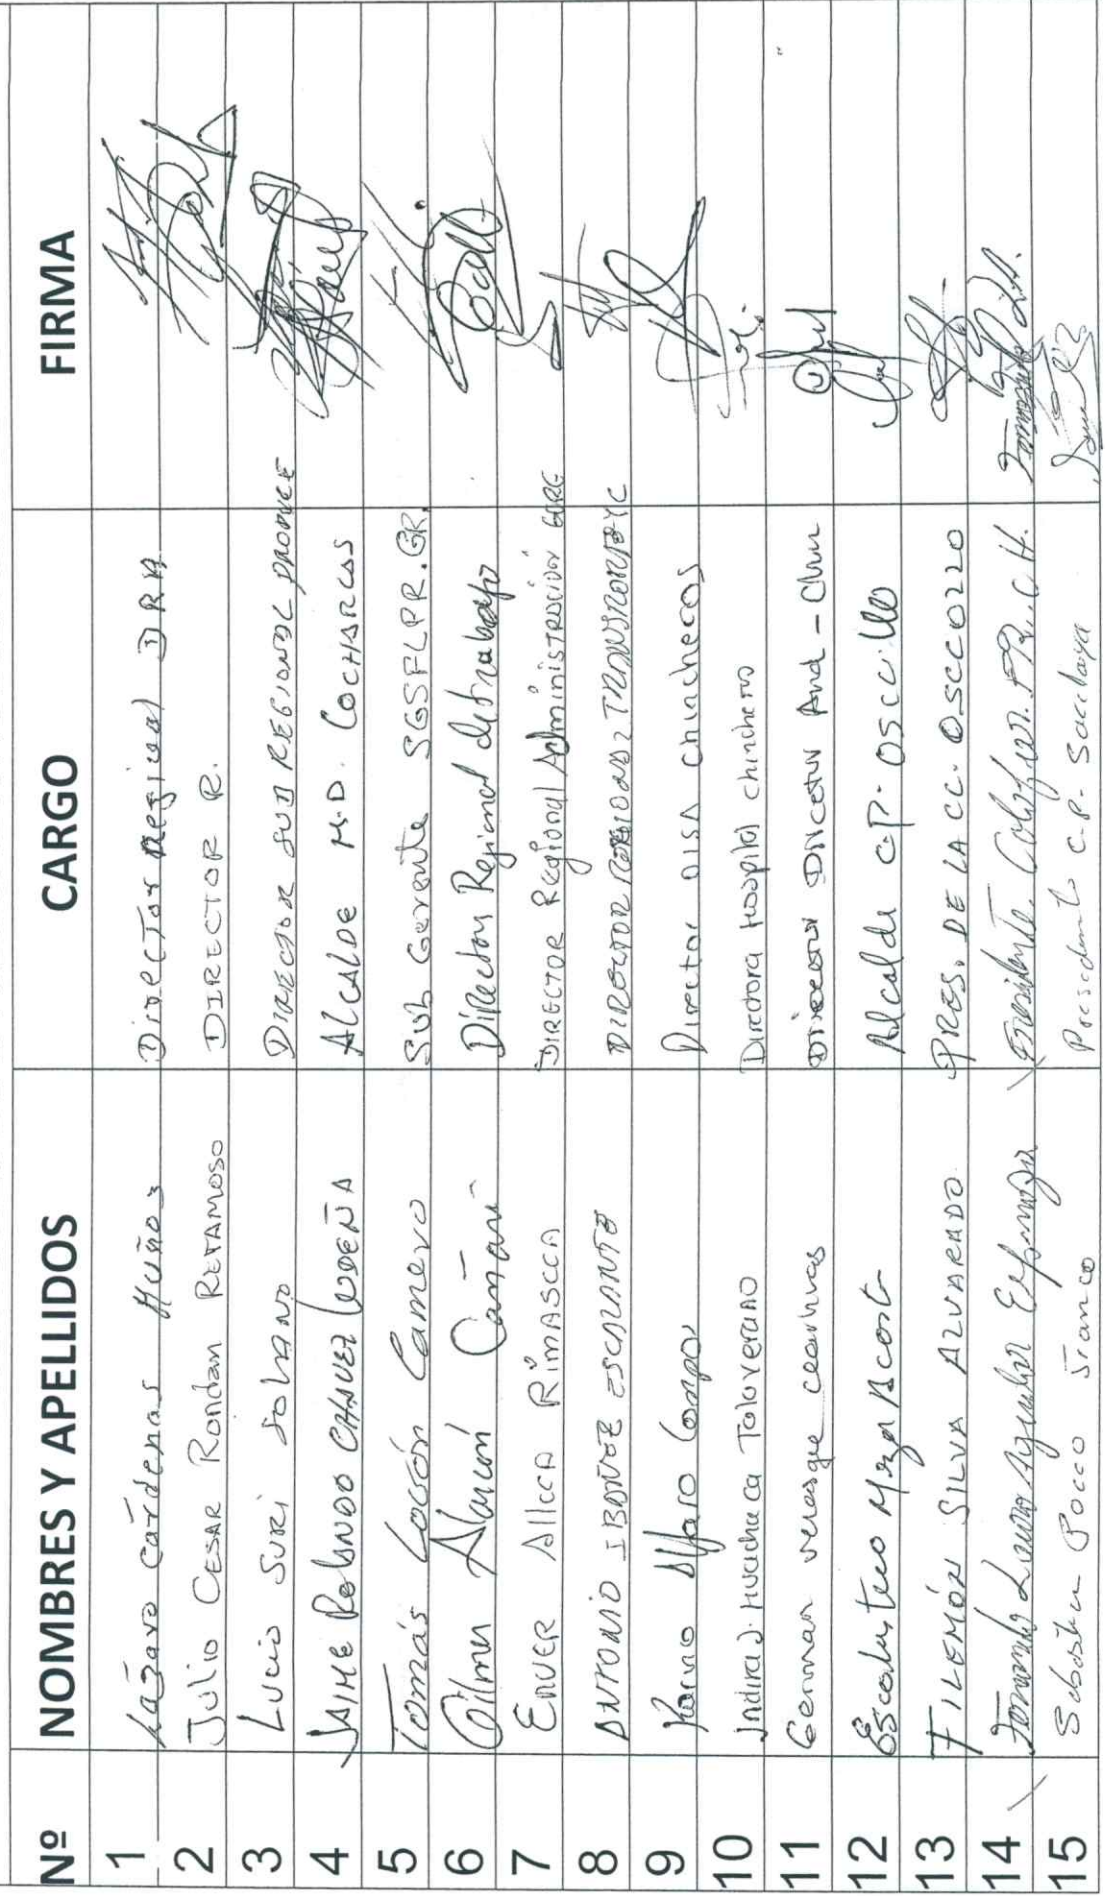 Nº NOMBRES Y APELLIDOS CARGO FIRMA
1 Lázaro Cárdenas Muñoz Director Regional DRA
2 Julio CESAR Rondan RETAMOSO DIRECTOR R.
3 Lucio SURI SOLANO DIRECTOR SUB REGIONAL PRODUCE
4 JAIME ROLANDO CHAVEZ LUDEÑA ALCALDE M.D. COCHARCAS
5 Tomás Camero Sub Gerente SGSFLPR.GR.
6 Gilmer Alarcón Cañari Director Regional de trabajo
7 ENVER Allcca RIMASCCA DIRECTOR Regional Administración GORE
8 ANTONIO IBAÑEZ ESCALANTE DIRECTOR REGIONAL TRANSPORTE
9 Alfaro Campos Director DISA chincheros
10 Indira J. Huacheca Toloverano Directora Hospital chincheros
11 German ccarhuas Director Dircetur And - Chin
12 Escolastico Meza Acosta Alcalde C.P. OSCCOLLO
13 FILEMÓN SILVA ALVARADO PRES. DE LA CC. OSCCOLLO
14 Fernando Aguilar Presidente
15 Rocco Franco Presidente C.P.